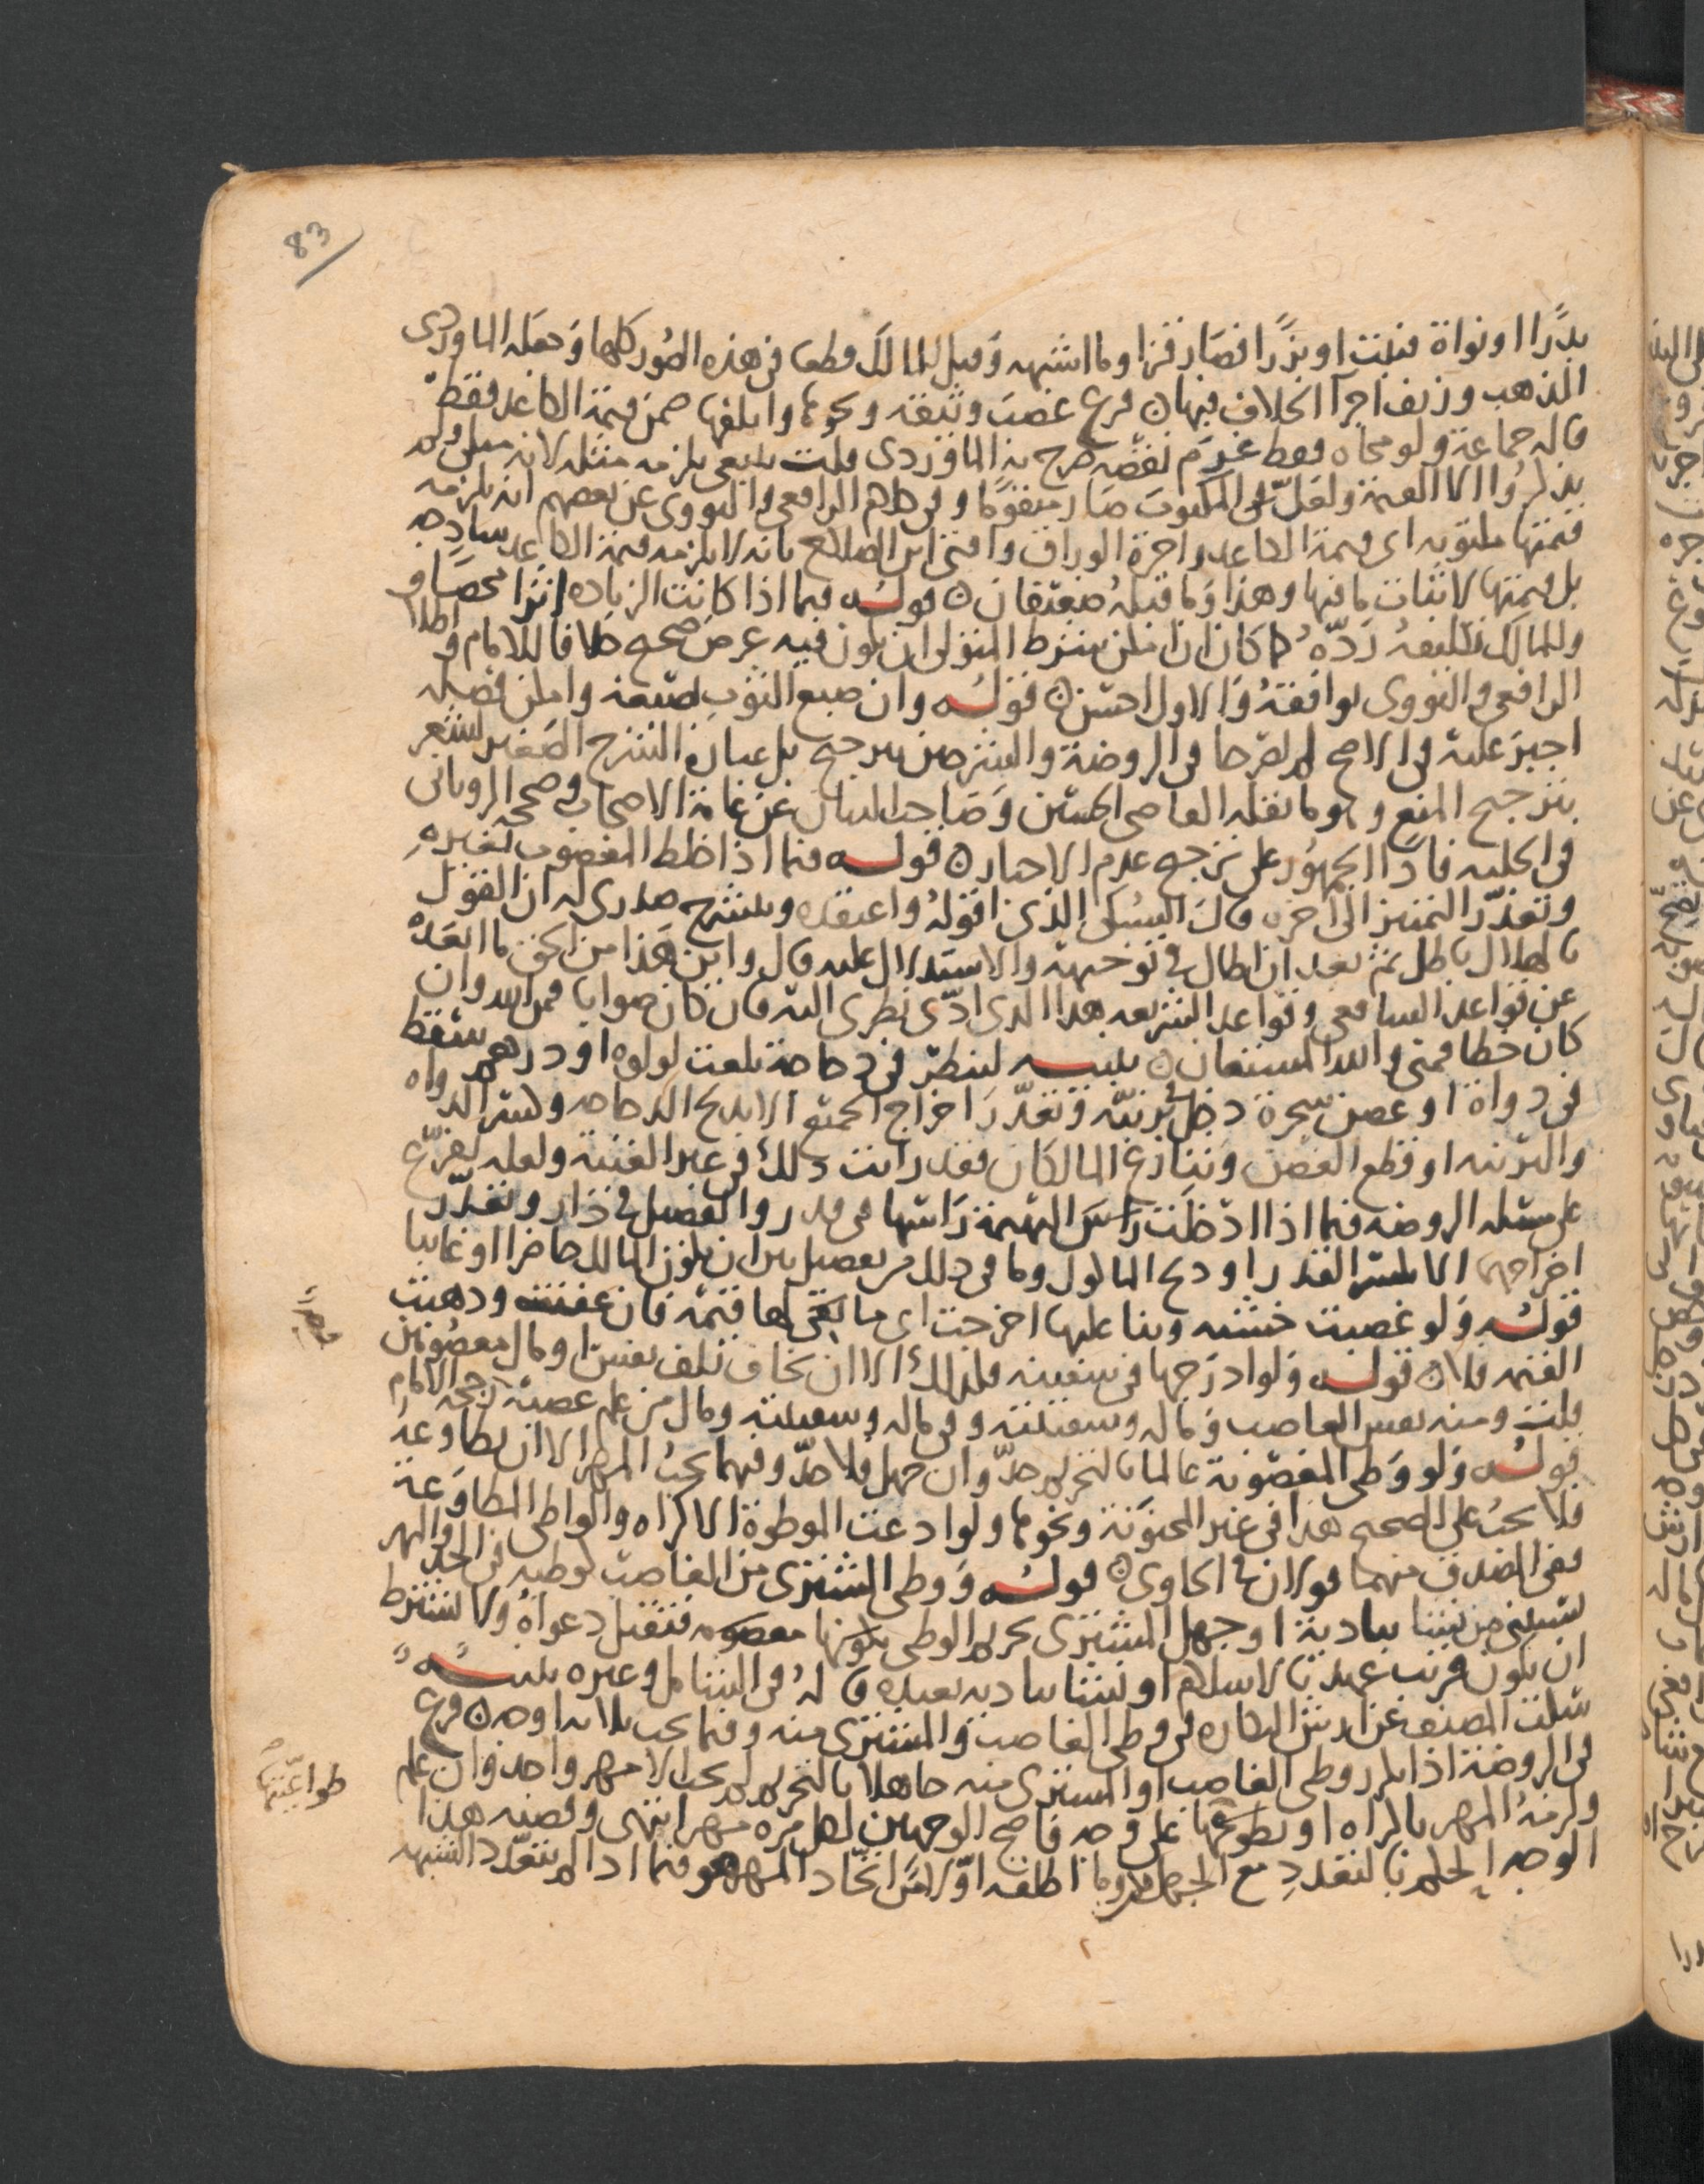 83
بذرًا او نواة فنبت او بزرًا فصار قزا وما اشبهه وقيل للمالك قطعا في هذه الصُور كلها وجعله الماوردي
المذهب وزيف اجرآ الخلاف فيهان فرع غصب وثيقة ونحوها واتلفها ضمن قيمة الكاغد فقط
قاله جماعة ولو محاه فقط غرم نقصه صرح به الماوردي قلت ينبغي يلزمه مثله لانه مثلي ولم
يذكروا الا القيمة ولعل في المكتوب صار متقومًا وفي كلام الرافعي والنووي عن بعضهم انه يلزمه
قيمتها مكتوبه اي قيمة الكاغد واجرة الوراق وافتى ابن الصلاح بانه لا يلزمه قيمة الكاغد ساذجه
بل قيمتها لاثبات ما فيها وهذا وما قبله ضعيفان ن قوله فيما اذا كانت الزياده اثرا محضا و
وللمالك تكليفه ردّه كما كان ان امكن يشترط المتولى ان يكون فيه غرض صحيح خلافا للامام واطلا
الرافعي والنووي يوافقهُ والاول احسن ن قوله وان صبع الثوب بصبغه وامكن فصله
اجبر عليه في الاصح لم يصرحا في الروضة والشرحين بترجيح بل عبارة الشرح الصغير تشعر
بترجيح المنع وهو ما نقله القاضي الحسين وصاحب البيان عن عامة الاصحاب وصححه الروياني
في الحليه فاذًا الجمهُور على ترجيح عدم الاجبار ن قوله فيما اذا خلط المغصوب بغيره
وتعذّر التمييز الى اخره قال السُبكي الذي اقولهُ واعتقده وينشرح صدري له ان القول
بالهلاك باطل ثم بعد ان اطال في توجيهه والاستدلال عليه قال واين هذا من الحق ما ابعده
عن قواعد الشافعي وقواعد الشريعه هذا الذي ادّى نظري اليه فان كان صوابا فمن الله وان
كان خطا فمني والله المستعان ن تنبيه لينظر في دجاجة بلعت لولوه او درهم سقط
في دواة او غصن شجرة دخل في برنيّه وتعذّر اخراج الجميع الا بذبح الدجاجه وكسر الدواه
والبرنيه او قطع الغصن وتنازع المالكان فقد رايت ذلك في غير الغنية ولعله يفرّع
على مسئله الروضه فيما اذا ادخلت راس البهيمة راسها في قدر والفصيل في دار وتعذّر
اخراجهما الا بكسر القدر او ذبح الماكول وما في ذلك من تفصيل بين ان يكون المالك حاضرا او غايبا
قوله ولو غصبت خشبه وبنا عليها اخرجت اي ما بقي لها قيمة فان عفنت وذهبت
القيمه فلا ن قوله ولو ادرجها في سفينه فكذلك الا ان يخاف تلف نفس او مال معصُومين
قلت ومنه نفس الغاصب وماله وسفينته وفي ماله وسفينته ومال من علم غصبه رجحه الامام
قوله ولو وطى المغصوبة عالما بالتحريم حدّ وان جهل فلا حدّ وفيهما يجب المهر الا ان تطاوعه
فلا يجب على الصحيح هذا في غير المجنونة ونحوها ولو ادعت الموطوة الاكراه والواطى المطاوعة
ففي المصدق منهما قولان في الحاوي ن قوله ووطى المشتري من الغاصب كوطيه في الحد والمهر
يستثنى من نشا ببادية او جهل المشتري تحريم الوطى بكونها مغصوبه فتقبل دعواهُ ولا يشترط
ان يكون قريب عهد بالاسلام او نشا ببادية بعيده قالهُ في الشامل وغيره تنبيه
سكت المصنف عن ارش البكاره في وطى الغاصب والمشتري منه وفيما يجب ثلاثه اوجه ن فرع
في الروضة اذا تكرر وطى الغاصب او المشتري منه جاهلا بالتحريم لم يجب الا مهر واحد فان علم
ولزمهُ المهر بالاكراه او بطوعها على وجه فاصح الوجهين لكل مره مهر انتهى وقضيه هذا
الوجه الحكم بالتعدد مع الجهل وما اطلقه اوّلا من اتحاد المهر هو فيما اذا لم يتعدّد الشبهه